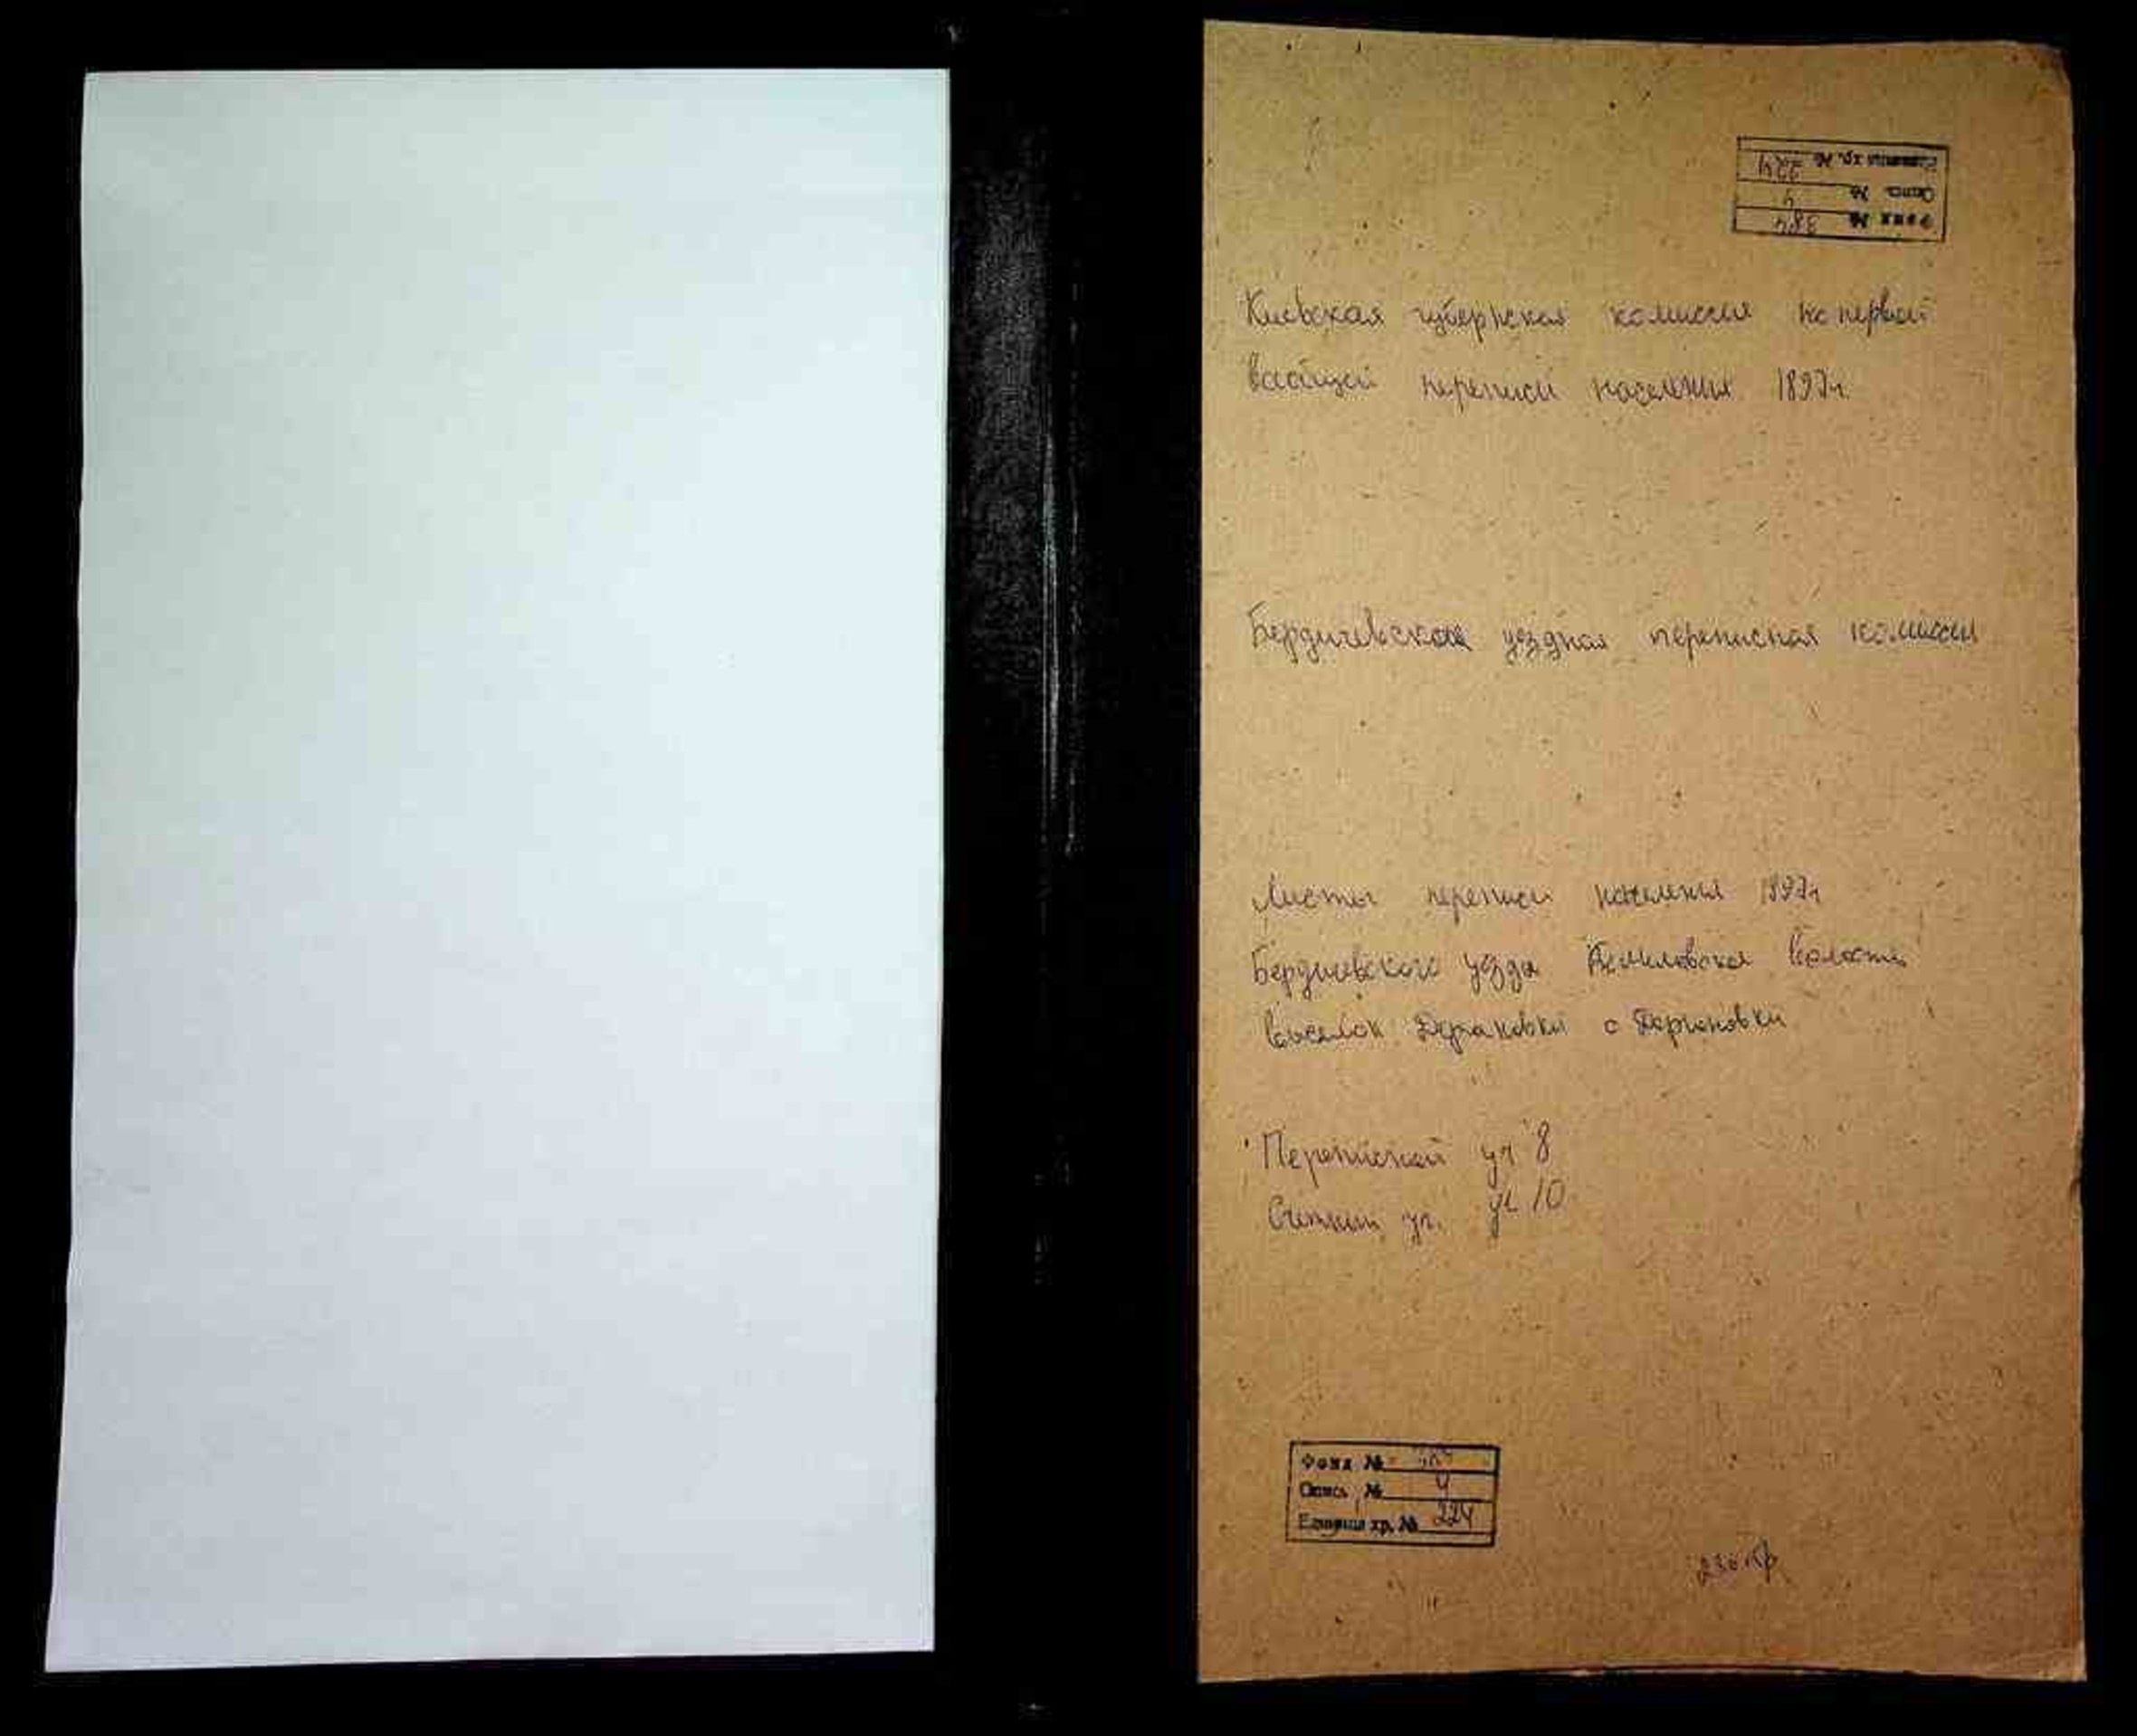 Единица хр. № 224
Опись № 4
Фонд № 384
Киевская губернская комиссия по первой
всеобщей переписи населения 1897г.
Бердичевская уездная переписная комиссия
Листы переписи населения 1897г
Бердичевского уезда волости
выселок
Переписной уч 8
Счетный уч. уч 10
Фонд № 384
Опись № 4
Единица хр. № 224